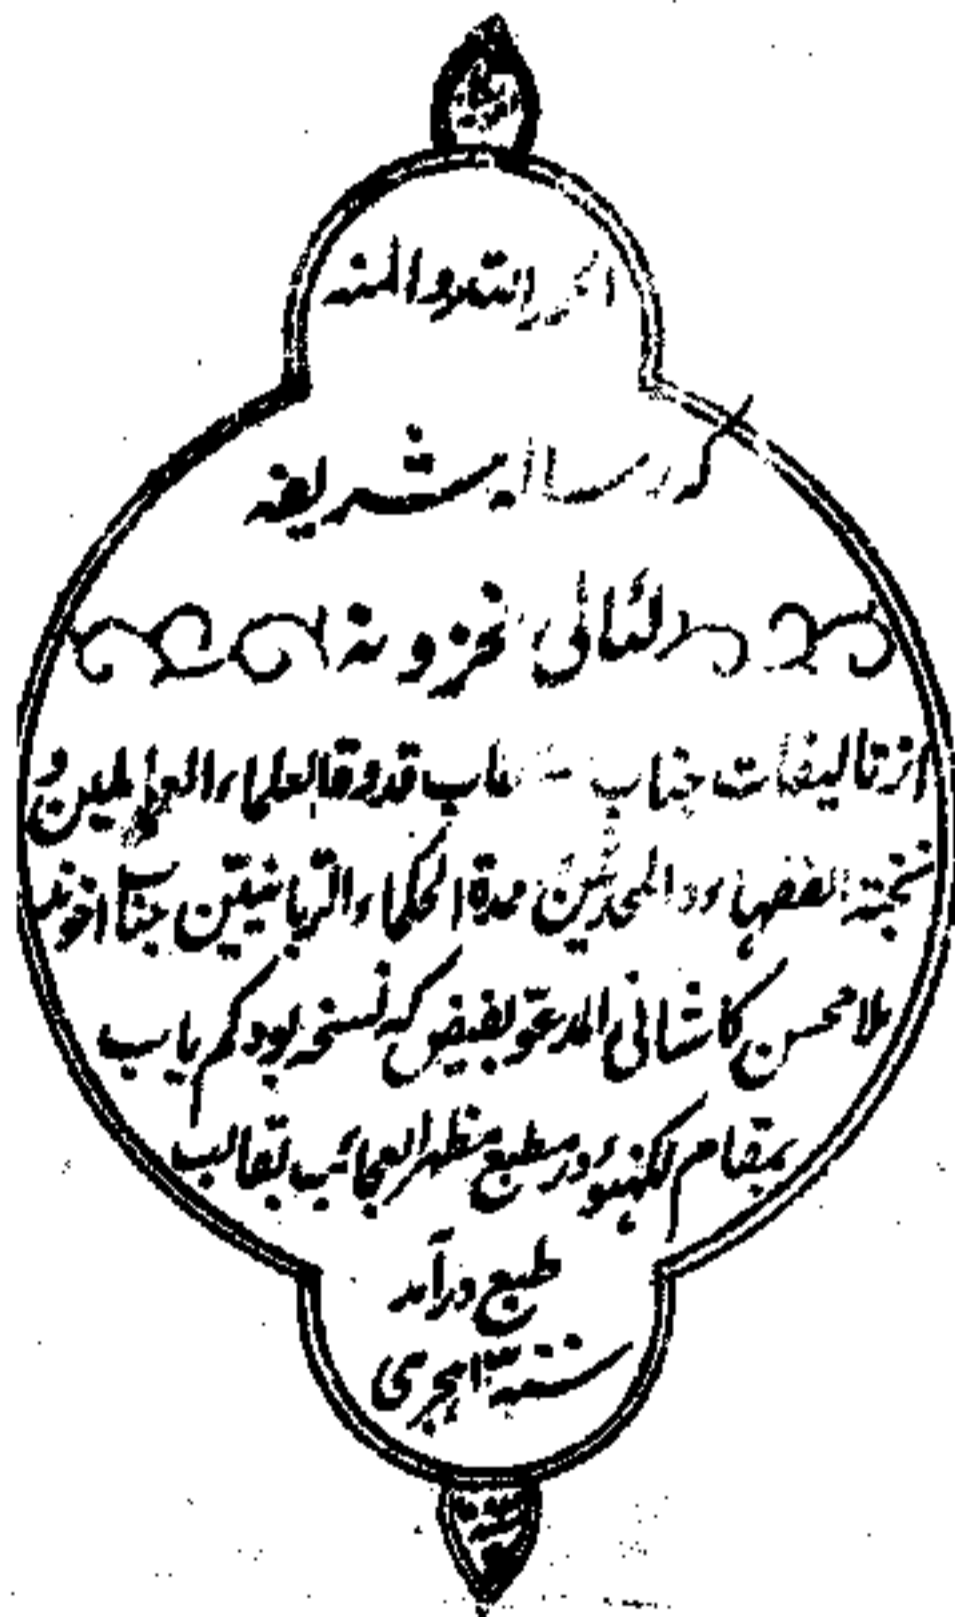 الحمد لله والمنه
که رساله شریفه
لئالی مخزونه
از تالیفات جناب مآب قدوة العلماء العاملین و
نخبة الفقهاء والمحدثین عمدة الحکماء الربانیین جناب اخوند
ملا محسن کاشانی المدعو بفیض که نسخه بود کم یاب
بمقام لکهنؤ در مطبع مظهر العجائب بقالب
طبع درآمد
هجری